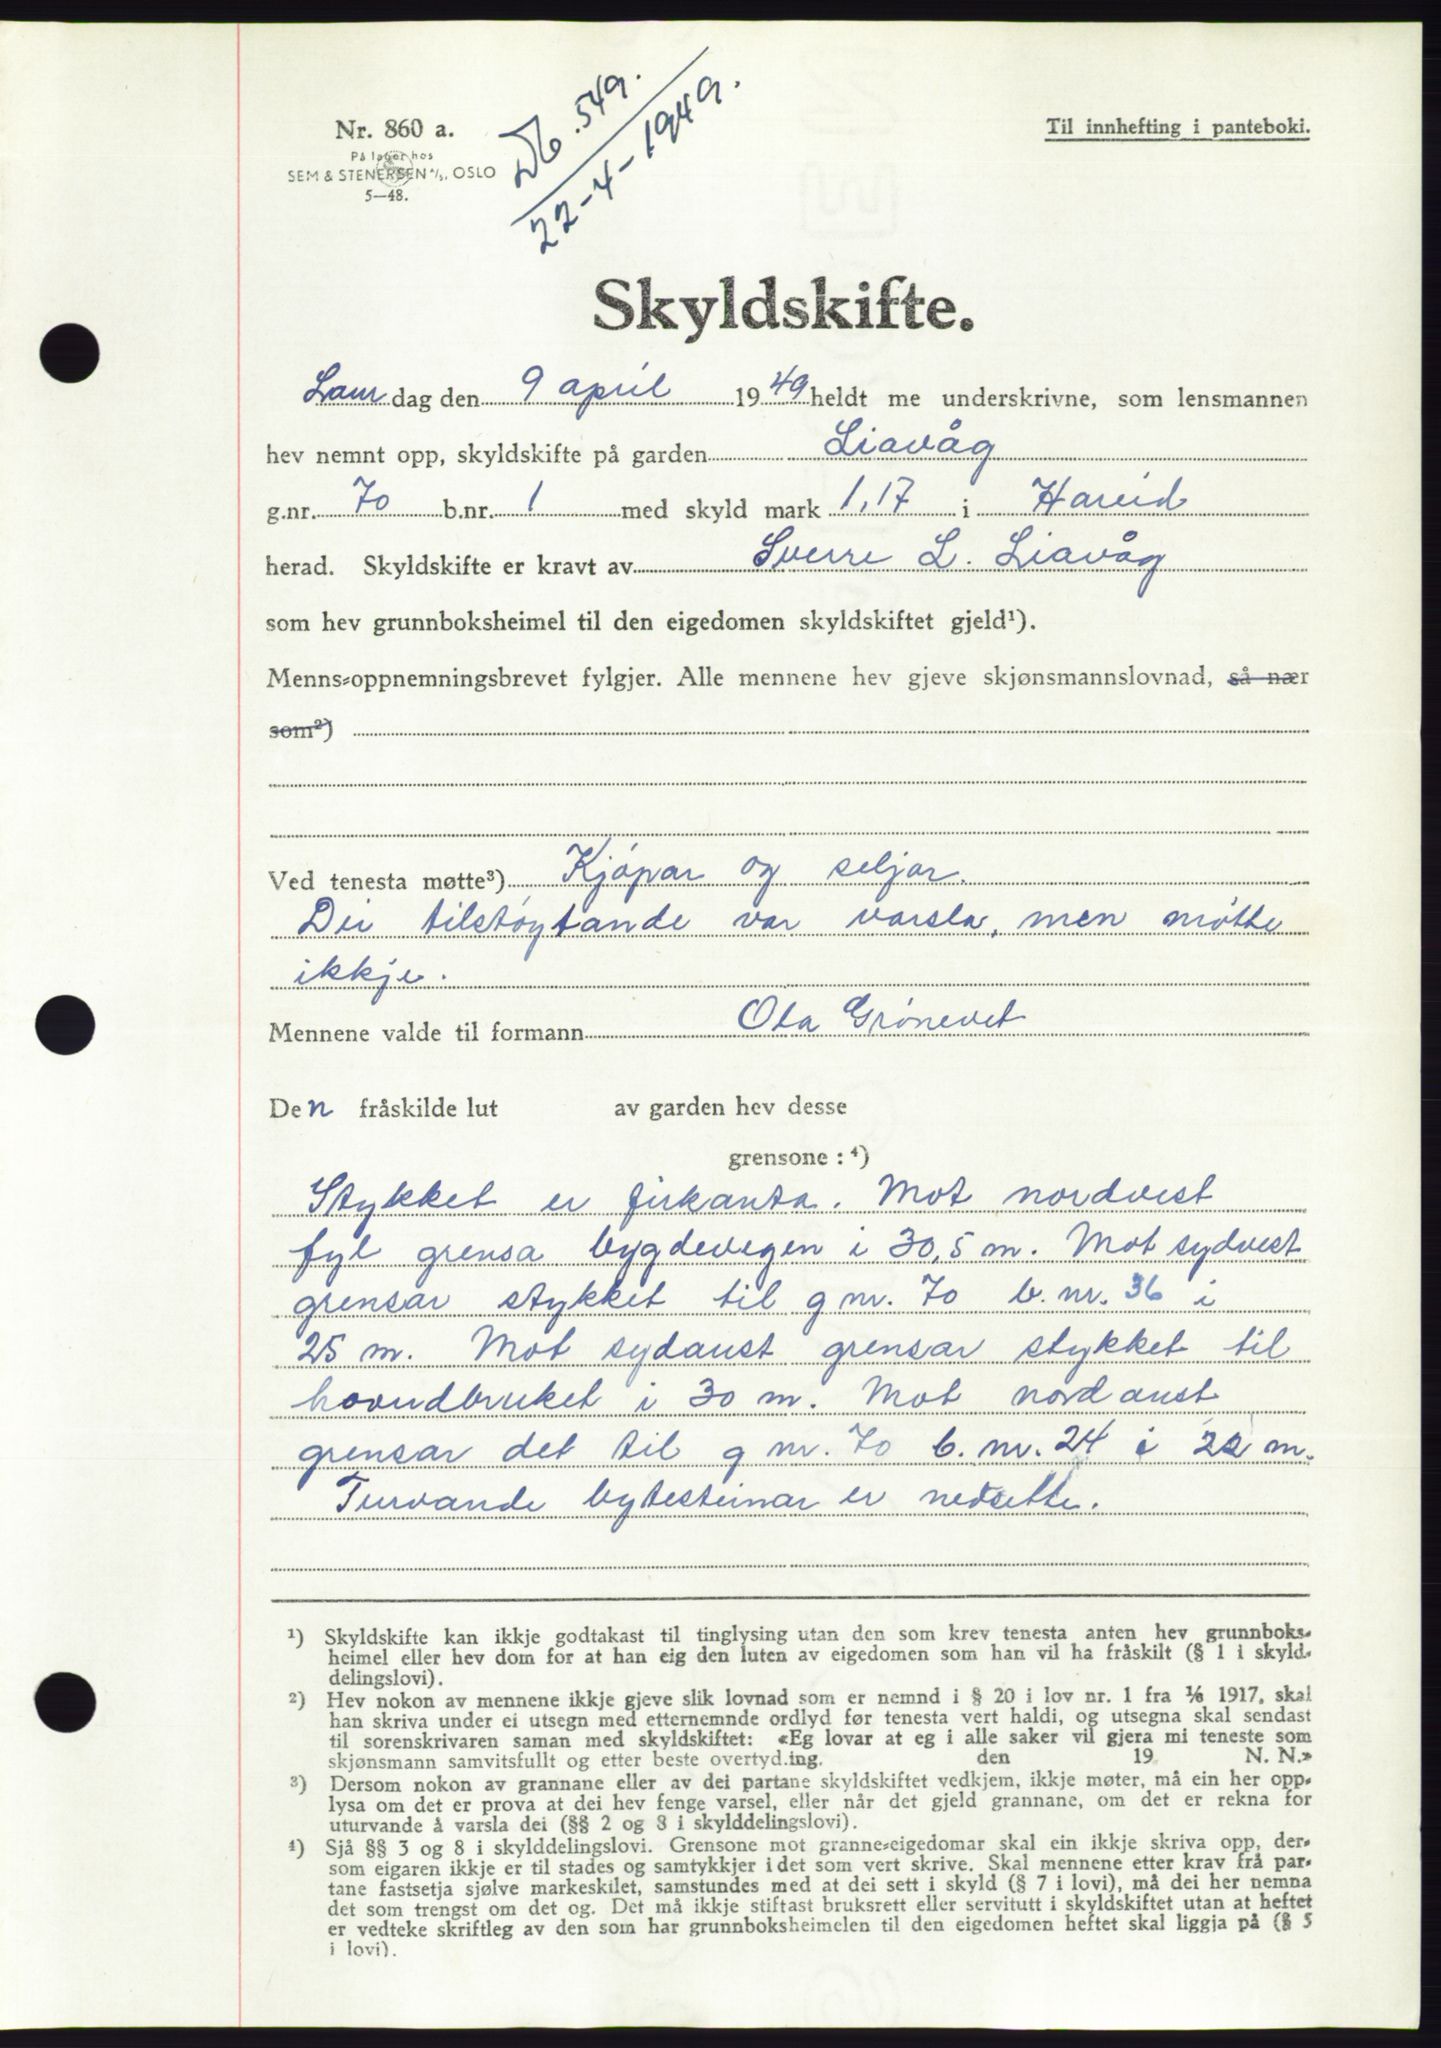 Nr. 860 a.
På lager hos
SEM & STENERSEN A/S, OSLO
5—48.
Db. 549.
22-4-1949.
Til innhefting i panteboki.
Skyldskifte.
Laur dag den 9 april 1949 heldt me underskrivne, som lensmannen
hev nemnt opp, skyldskifte på garden Liavåg
g.nr. 70 b.nr. 1 med skyld mark 1,17 i Hareid
herad. Skyldskifte er kravt av Sverre L. Liavåg
som hev grunnboksheimel til den eigedomen skyldskiftet gjeld¹).
Menns-oppnemningsbrevet fylgjer. Alle mennene hev gjeve skjønsmannslovnad, så nær
som²)
Ved tenesta møtte³) Kjøpar og seljar.
Dei tilstøytande var varsla, men møtte
ikkje.
Mennene valde til formann Ola Grönevet
Den fråskilde lut av garden hev desse
grensone : ⁴)
Stykket er firkanta. Mot nordvest
fyl grensa bygdevegen i 30,5 m. Mot sydvest
grensar stykket til g nr. 70 b. nr. 36 i
25 m. Mot sydaust grensar stykket til
hovudbruket i 30 m. Mot nordaust
grensar det til g nr. 70 b. nr. 24 i 22 m.
Turvande bytesteinar er nedsette.
¹) Skyldskifte kan ikkje godtakast til tinglysing utan den som krev tenesta anten hev grunnboks-
heimel eller hev dom for at han eig den luten av eigedomen som han vil ha fråskilt (§ 1 i skyld-
delingslovi).
²) Hev nokon av mennene ikkje gjeve slik lovnad som er nemnd i § 20 i lov nr. 1 fra 1/6 1917, skal
han skriva under ei utsegn med etternemnde ordlyd før tenesta vert haldi, og utsegna skal sendast
til sorenskrivaren saman med skyldskiftet: «Eg lovar at eg i alle saker vil gjera mi teneste som
skjønsmann samvitsfullt og etter beste overtyd.ing. den 19 N. N.»
³) Dersom nokon av grannane eller av dei partane skyldskiftet vedkjem, ikkje møter, må ein her opp-
lysa om det er prova at dei hev fenge varsel, eller når det gjeld grannane, om det er rekna for
uturvande å varsla dei (§§ 2 og 8 i skylddelingslovi).
⁴) Sjå §§ 3 og 8 i skylddelingslovi. Grensone mot granne-eigedomar skal ein ikkje skriva opp, der-
som eigaren ikkje er til stades og samtykkjer i det som vert skrive. Skal mennene etter krav frå par-
tane fastsetja sjølve markeskilet, samstundes med at dei sett i skyld (§ 7 i lovi), må dei her nemna
det som trengst om det og. Det må ikkje stiftast bruksrett eller servitutt i skyldskiftet utan at heftet
er vedteke skriftleg av den som har grunnboksheimelen til den eigedomen heftet skal liggja på (§ 5
i lovi).